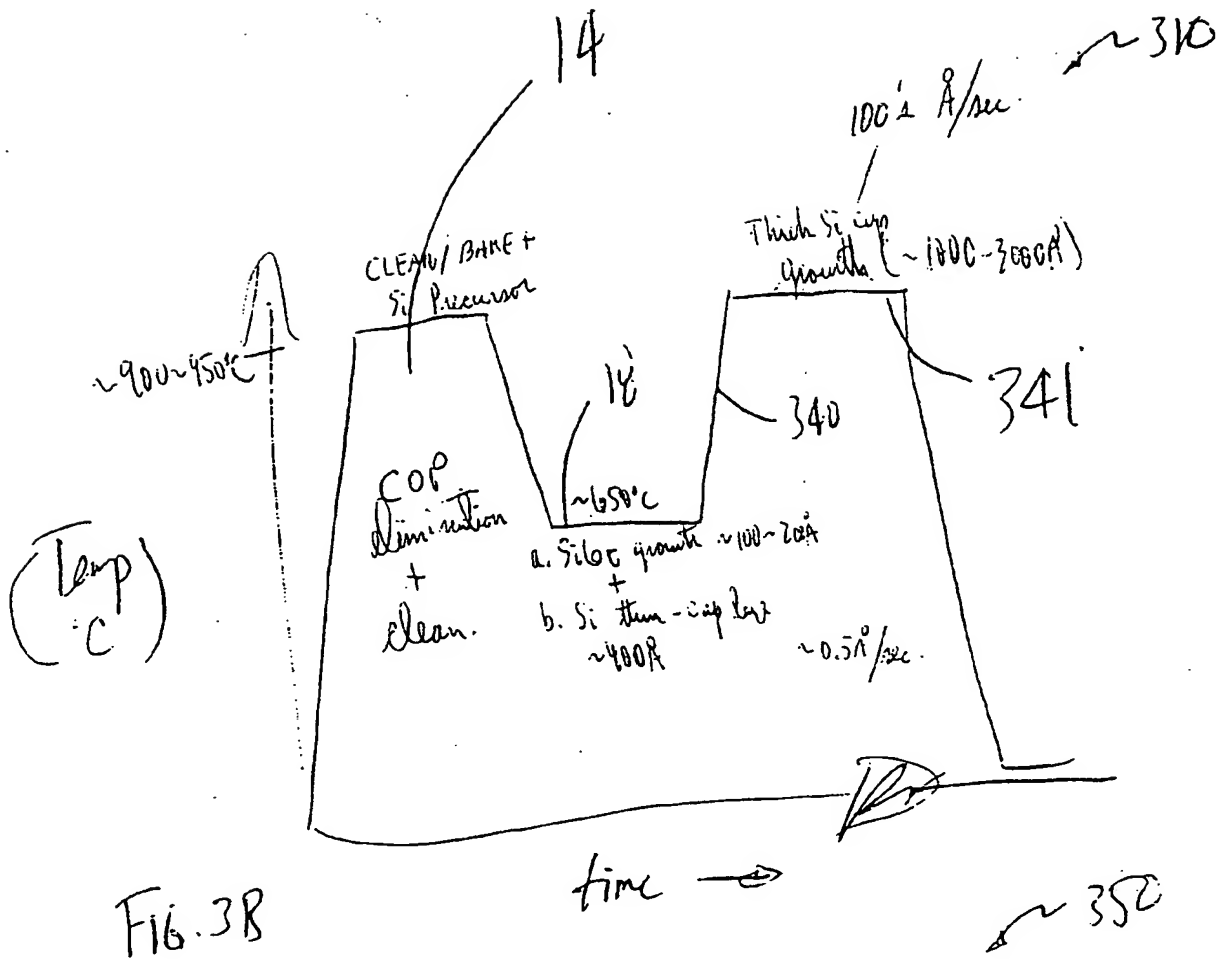 14
~ 310
100's Å/sec.
CLEAN / BAKE +
Si Precursor
Thick Si cap
growth (~
~900~950°C
18
340
341
COP
elimination
+
clean.
~650°C
a. SiGe growth ~100~200Å
+
b. Si thin-cap layer
~400Å
~0.5Å/sec.
(Temp
°C)
time →
FIG. 3B
~ 350